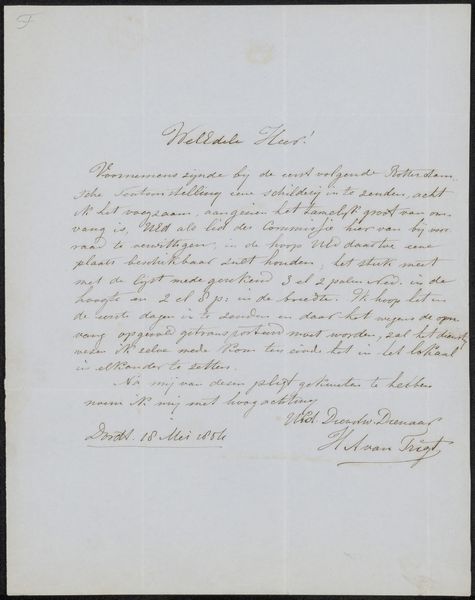 WelEdele Heer!
Voornemens zijnde bij de eerst volgende Rotterdam-
sche Tentoonstelling eene schilderij in te zenden, acht
ik het raadzaam, aangezien het tamelijk groot van om-
vang is, UEd als lid der Commissie hier van bij voor
raad te verwittigen, in de hoop UEd daartoe eene
plaats beschikbaar zult houden, het stuk meet
met de lijst mede gerekend 3 el 2 palm Ned. in de
hoogte en 2 el 8 p: in de breedte. Ik hoop het in
de eerste dagen in te zenden en daar het wegens de om
vang opgerold getransporteerd moet worden, zal het
wezen ik zelve mede kom ten einde het in het lokaal
in elkander te zetten.
Na mij van dezen pligt gekweten te hebben
noem ik mij met hoogachting
UEd. Dienstw. Dienaar
Dordt. 18 Mei 1854
H A van Trigt